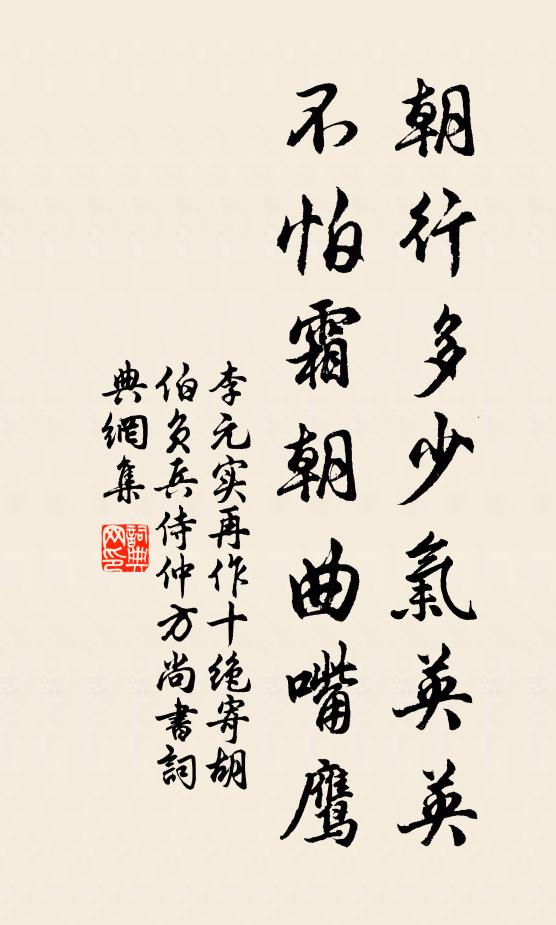 朝行多少氣英英
不怕霜朝曲嘴鷹
李元实再作十絶寄胡
伯負兵侍仲方尚書詞
典網集
詞典
网印